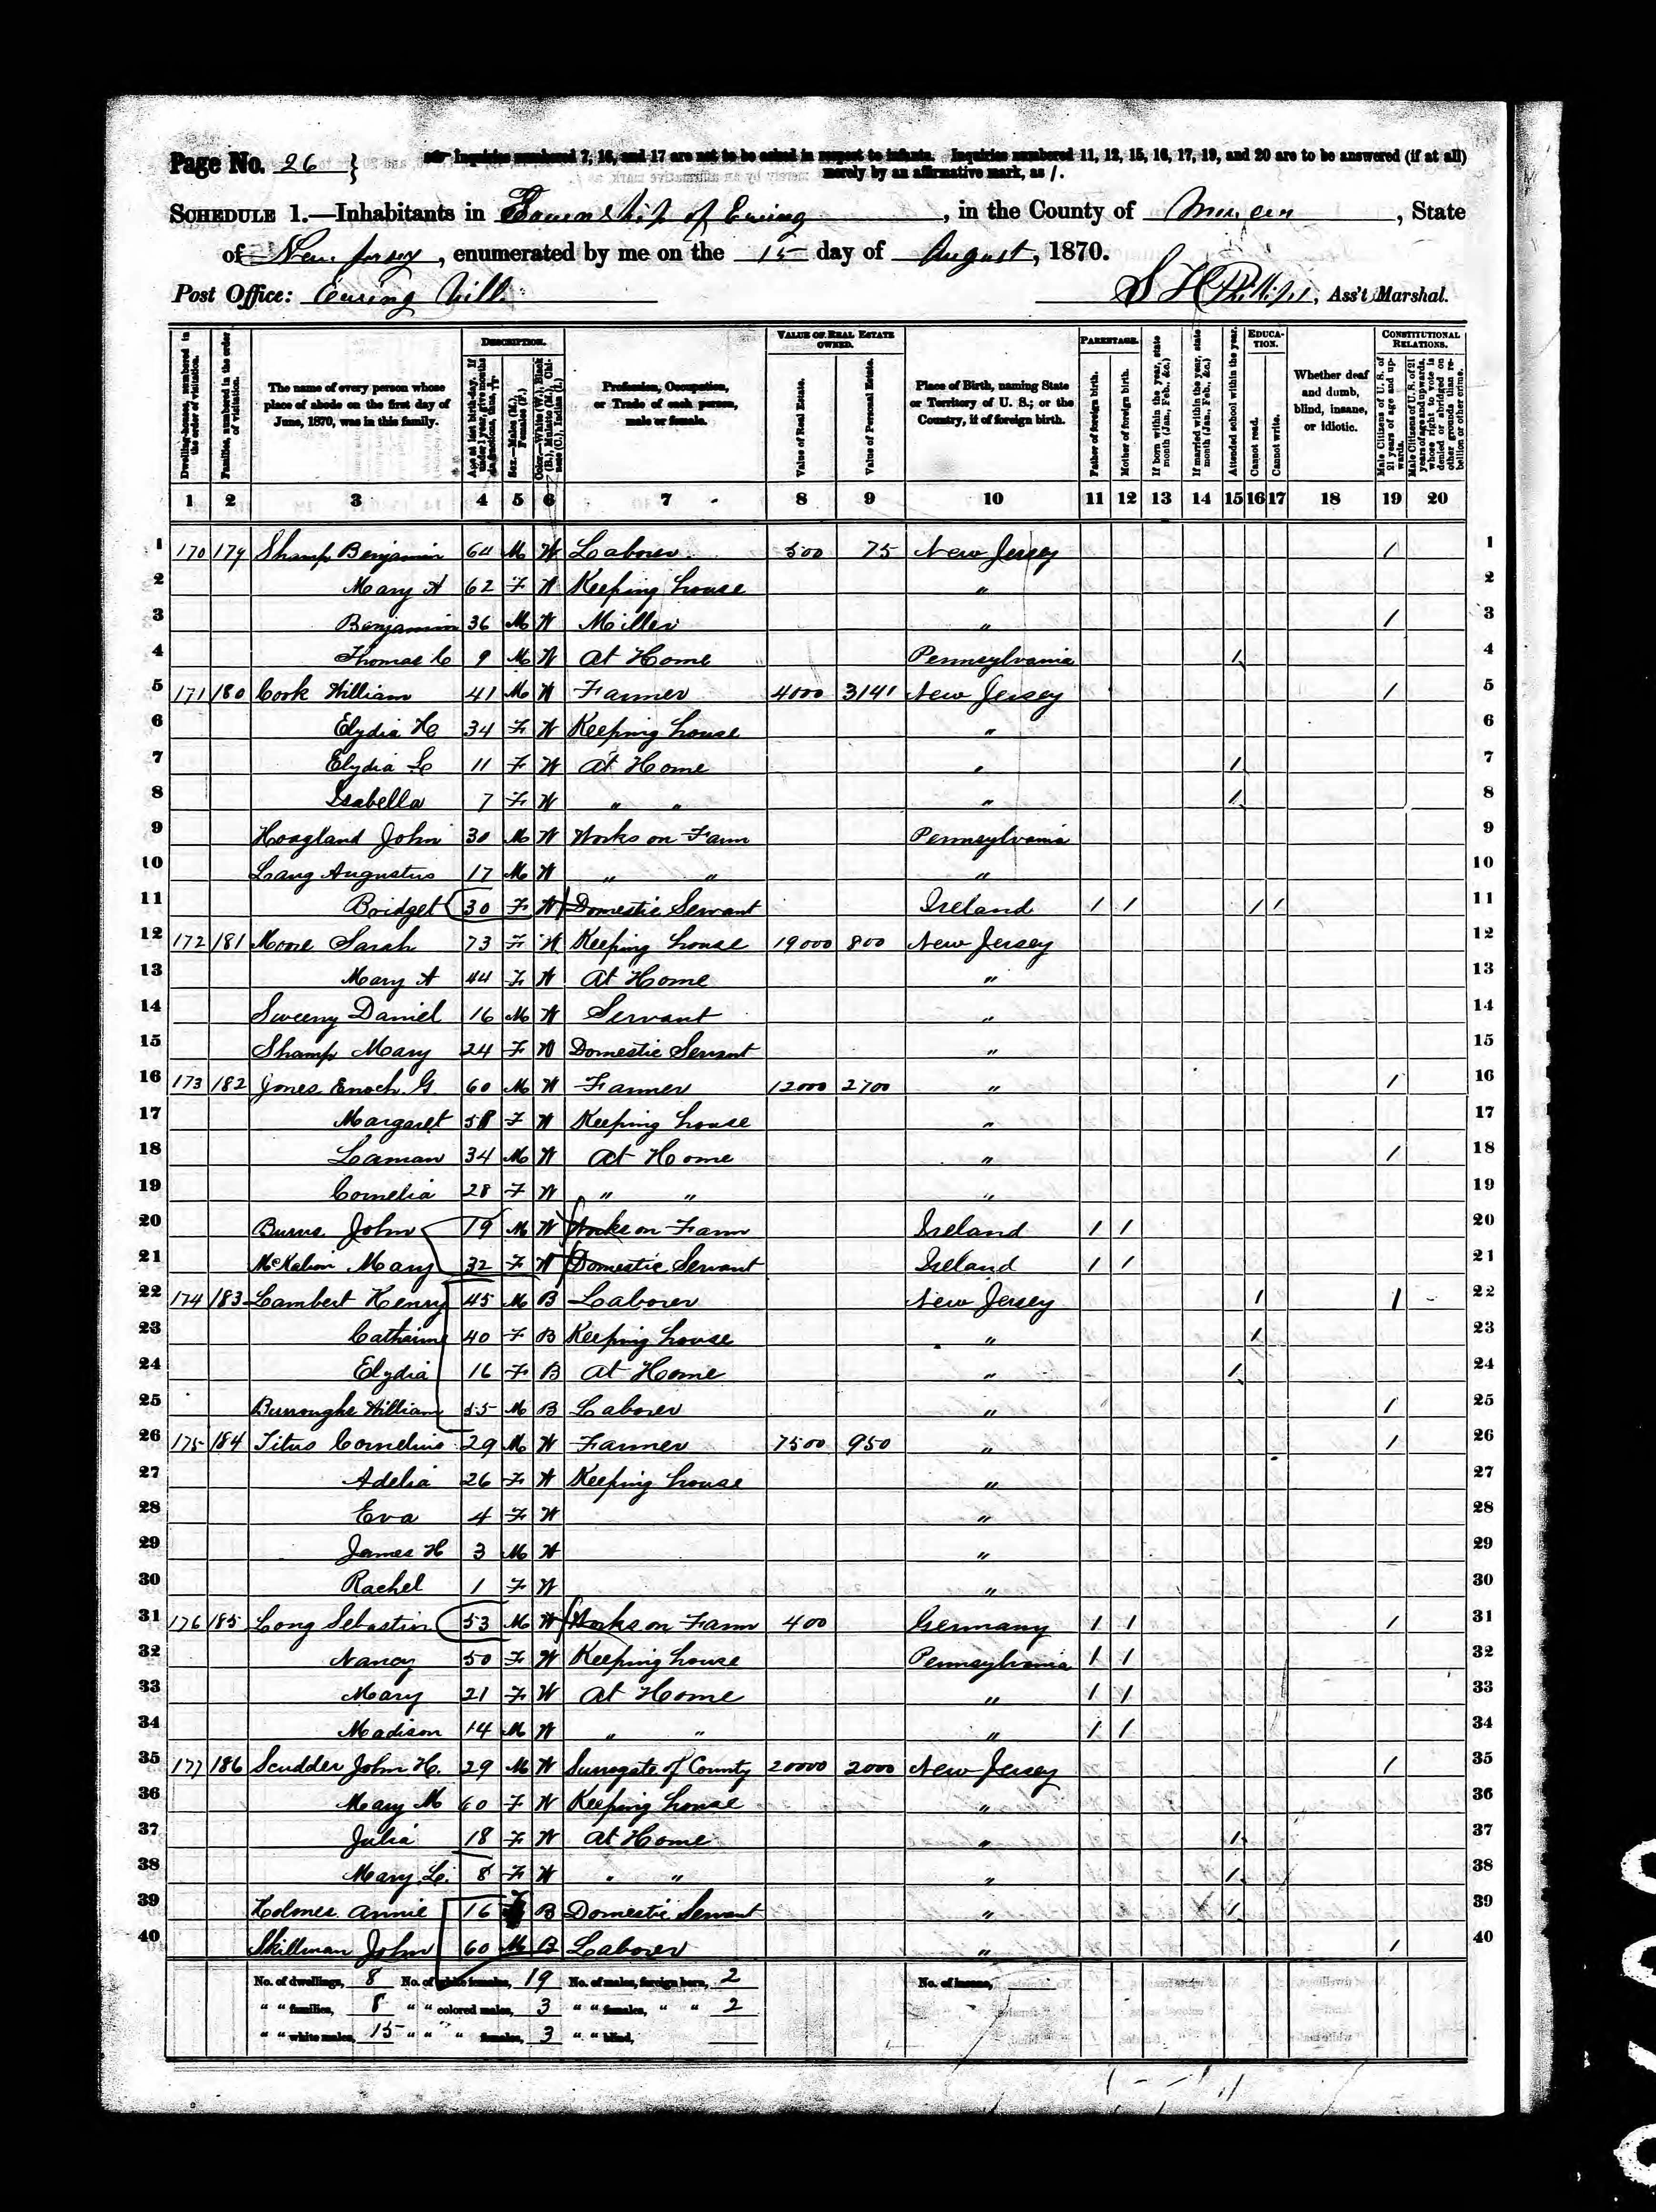 Page No. 26 }
Inquiries numbered 7, 16, and 17 are not to be asked in respect to infants. Inquiries numbered 11, 12, 15, 16, 17, 19, and 20 are to be answered (if at all)
merely by an affirmative mark, as /.
SCHEDULE 1.—Inhabitants in Township of Ewing, in the County of Mercer, State
of New Jersey, enumerated by me on the 15 day of August, 1870.
Post Office: Ewing Ville S H Phillips, Ass't Marshal.
DESCRIPTION. VALUE OF REAL ESTATE OWNED. PARENTAGE. EDUCATION. CONSTITUTIONAL RELATIONS.
Dwelling-houses, numbered in the order of visitation. Families, numbered in the order of visitation. The name of every person whose place of abode on the first day of June, 1870, was in this family. Age at last birth-day. If under 1 year, give months in fractions, thus, Sex.—Males (M.), Females (F.) Color.—White (W.), Black (B.), Mulatto (M.), Chinese (C.), Indian (I.) Profession, Occupation, or Trade of each person, male or female. Value of Real Estate. Value of Personal Estate. Place of Birth, naming State or Territory of U. S.; or the Country, if of foreign birth. Father of foreign birth. Mother of foreign birth. If born within the year, state month (Jan., Feb., &c.) If married within the year, state month (Jan., Feb., &c.) Attended school within the year. Cannot read. Cannot write. Whether deaf and dumb, blind, insane, or idiotic. Male Citizens of U. S. of 21 years of age and upwards. Male Citizens of U. S. of 21 years of age and upwards, whose right to vote is denied or abridged on other grounds than rebellion or other crime.
1 2 3 4 5 6 7 8 9 10 11 12 13 14 15 16 17 18 19 20
1 170 179 Shamp Benjamin 64 M W Laborer 500 75 New Jersey / 1
2 Mary A 62 F W Keeping house " 2
3 Benjamin 36 M W Miller " / 3
4 Thomas C 9 M W At Home Pennsylvania / 4
5 171 180 Cook William 41 M W Farmer 4000 3141 New Jersey / 5
6 Elydia H 34 F W Keeping house " 6
7 Elydia L 11 F W At Home " / 7
8 Isabella 7 F W " " " / 8
9 Hoagland John 30 M W Works on Farm Pennsylvania 9
10 Lang Augustus 17 M W " " " 10
11 Bridget 30 F W Domestic Servant Ireland / / / / 11
12 172 181 Moore Sarah 73 F W Keeping house 19000 800 New Jersey 12
13 Mary A 44 F W At Home " 13
14 Sweeny Daniel 16 M W Servant " 14
15 Shamp Mary 24 F W Domestic Servant " 15
16 173 182 Jones Enoch G. 60 M W Farmer 12000 2700 " / 16
17 Margaret 58 F W Keeping house " 17
18 Laman 34 M W At Home " / 18
19 Cornelia 28 F W " " " 19
20 Burns John 19 M W Works on Farm Ireland / / 20
21 Mary 32 F W Domestic Servant Ireland / / 21
22 174 183 Lambert Henry 45 M B Laborer New Jersey / / 22
23 Catharine 40 F B Keeping house " / 23
24 Elydia 16 F B At Home " / 24
25 Burroughs William 55 M B Laborer " / 25
26 175 184 Titus Cornelius 29 M W Farmer 7500 950 " / 26
27 Adelia 26 F W Keeping house " 27
28 Eva 4 F W " 28
29 James H 3 M W " 29
30 Rachel 1 F W " 30
31 176 185 Long Sebastin 53 M W Works on Farm 400 Germany / / / 31
32 Nancy 50 F W Keeping house Pennsylvania / / 32
33 Mary 21 F W At Home " / / 33
34 Madison 14 M W " " " / / 34
35 177 186 Scudder John H. 29 M W Surrogate of County 20000 2000 New Jersey / 35
36 Mary M 60 F W Keeping house " 36
37 Julia 18 F W At Home " / 37
38 Mary L. 8 F W " " " / 38
39 Holmes Annie 16 F B Domestic Servant " / 39
40 Skillman John 60 M B Laborer " / 40
No. of dwellings, 8 No. of white females, 19 No. of males, foreign born, 2 No. of insane,
" " families, 8 " " colored males, 3 " " females, " " 2
" " white males, 15 " " " females, 3 " " blind,